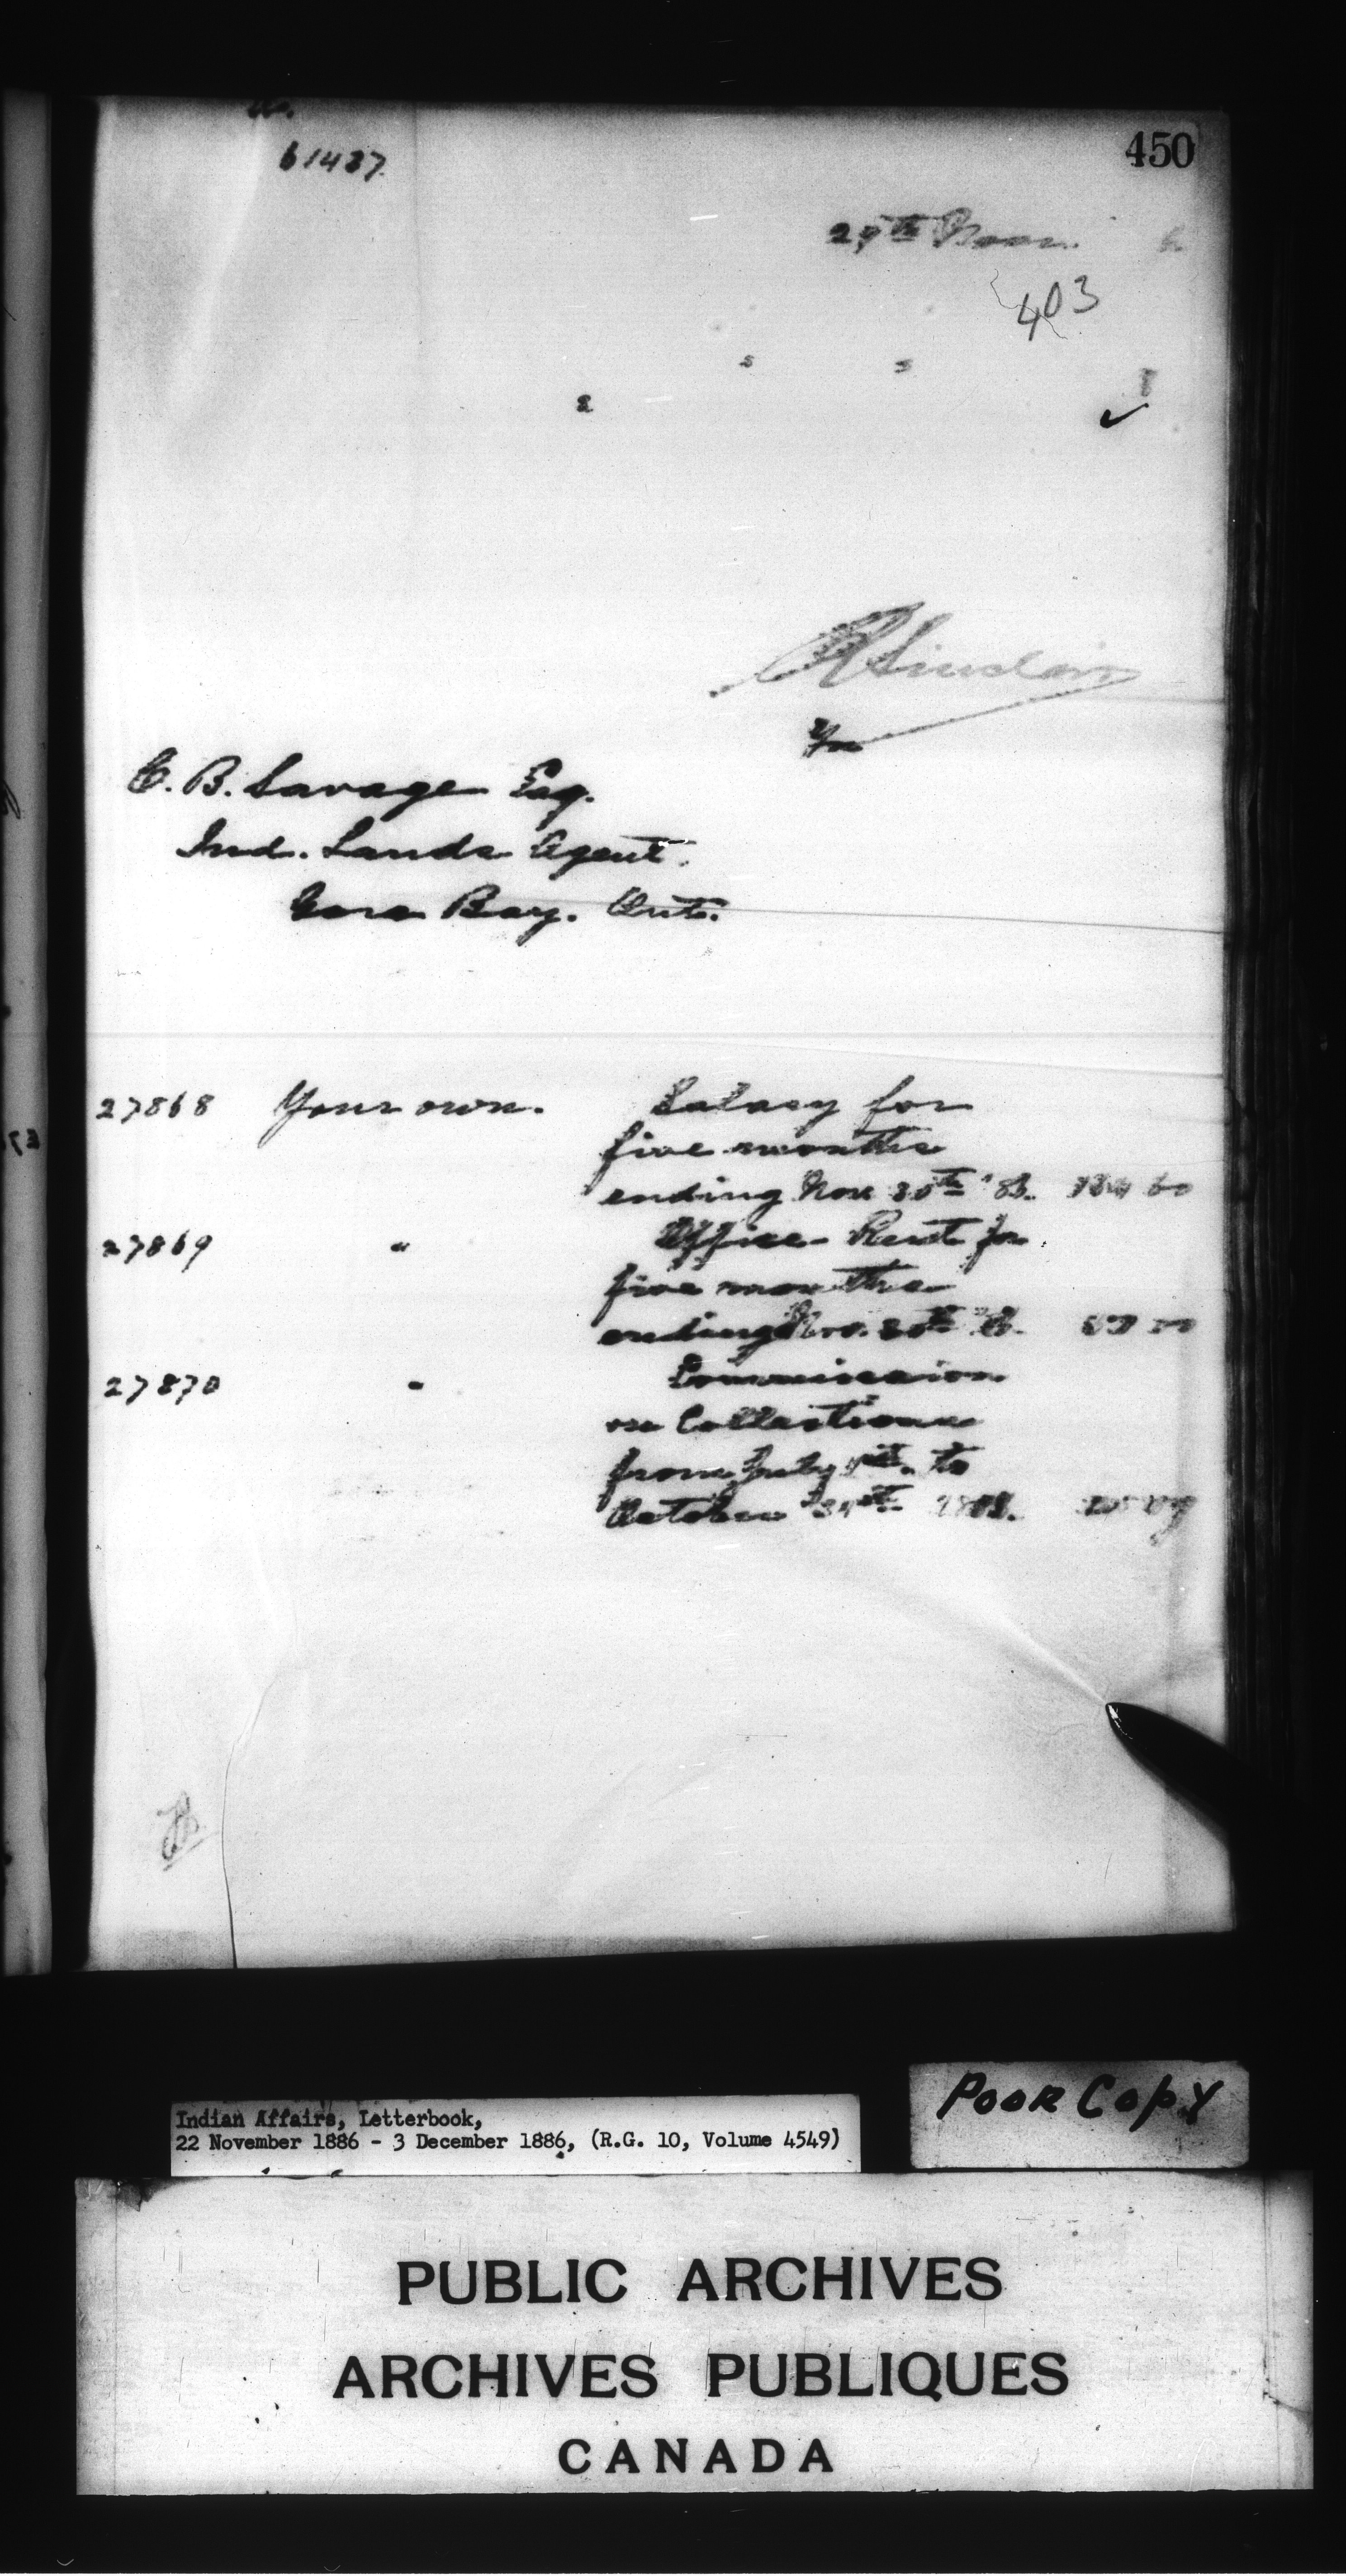 61437.
450
29th Novr. 6
403
s s
2
R Sinclair
C. B. Savage Esq.
Ind. Lands Agent.
Gore Bay. Ont.
27868 Your own. Salary for
five months
ending Nov 30th '86.
27869 " Office Rent for
five months
ending Nov. 30th
27870 " Commission
on Collections
from July 1st. to
October 31st.
Indian Affairs, Letterbook,
22 November 1886 - 3 December 1886, (R.G. 10, Volume 4549)
Poor Copy
PUBLIC ARCHIVES
ARCHIVES PUBLIQUES
CANADA